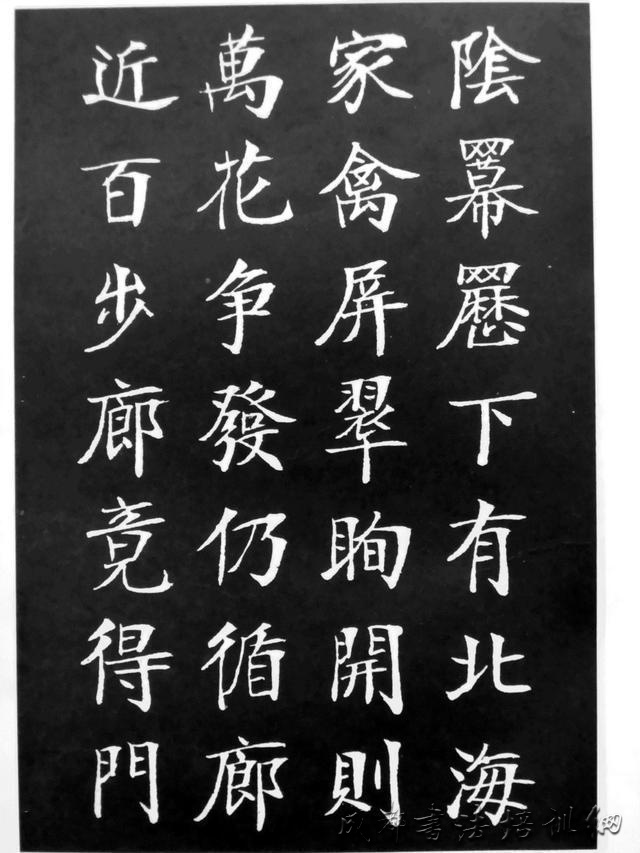 陰羃䍥下有北海
家禽屏翠眴開則
萬花争發仍循廊
近百步廊竟得門
书法培训网